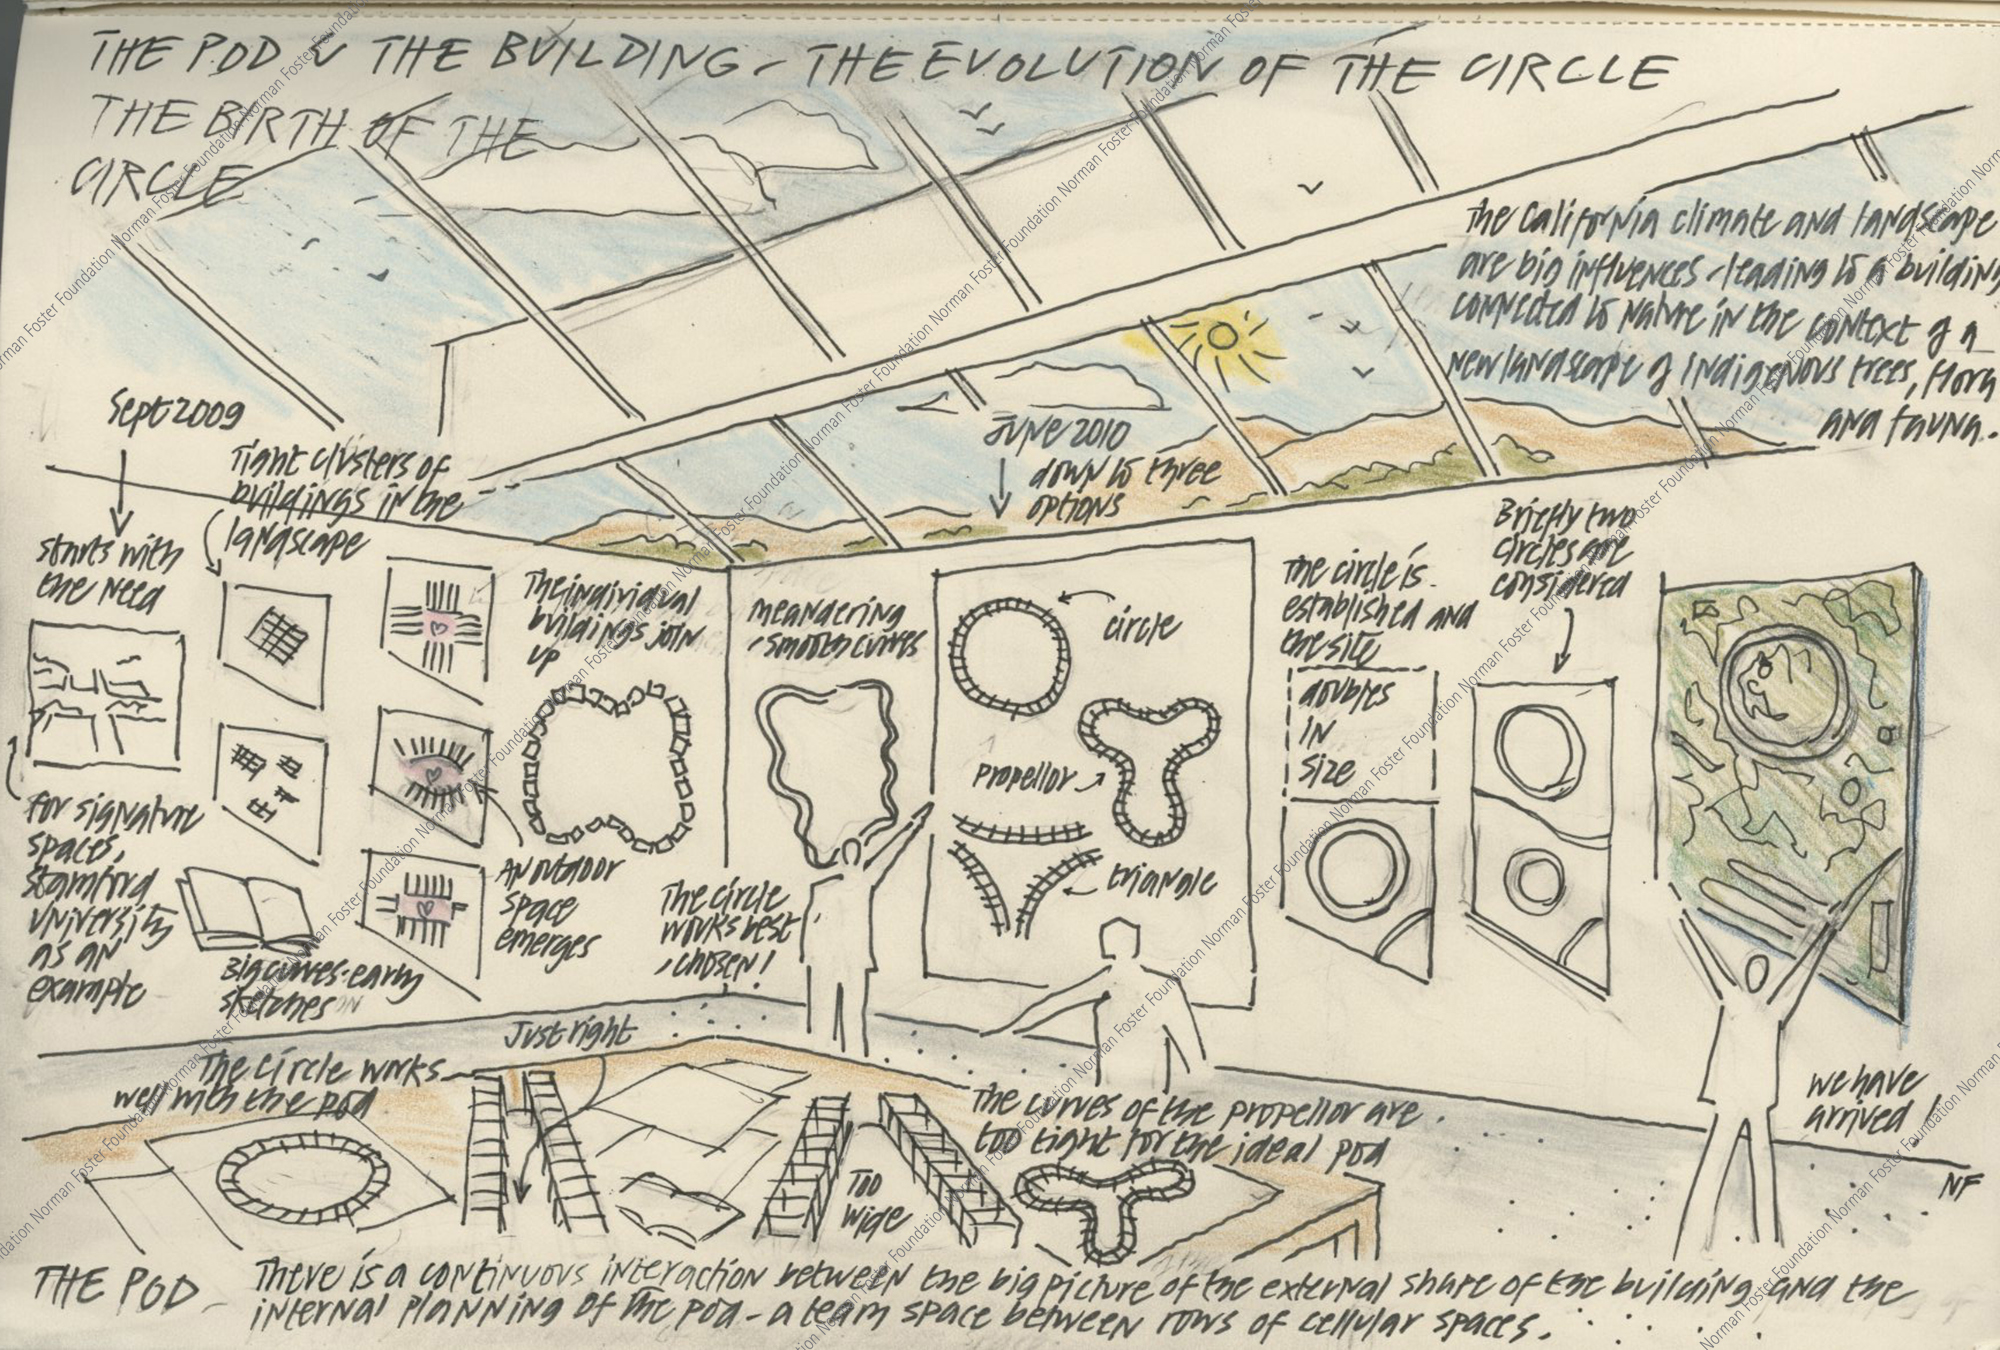 THE POD & THE BUILDING - THE EVOLUTION OF THE CIRCLE
THE BIRTH OF THE
CIRCLE
The California climate and landscape
are big influences - leading to a building
connected to nature in the context of a
new landscape of indigenous trees, flora
and fauna.
Sept 2009
starts with
the need
for signature
spaces,
Stamford
University
as an
example
Tight clusters of
buildings in the
landscape
Big curves - early
sketches
The individual
buildings join
up
An outdoor
space
emerges
meandering
- smooth curves
The circle
works best
- chosen!
June 2010
down to three
options
circle
propellor
triangle
The circle is
established and
the site
doubles
in
size
Briefly two
circles are
considered
we have
arrived!
Just right
The circle works
well with the pod
Too
wide
The curves of the propellor are
too tight for the ideal pod
NF
THE POD - There is a continuous interaction between the big picture of the external shape of the building and the
internal planning of the pod - a team space between rows of cellular spaces.
Norman Foster Foundation